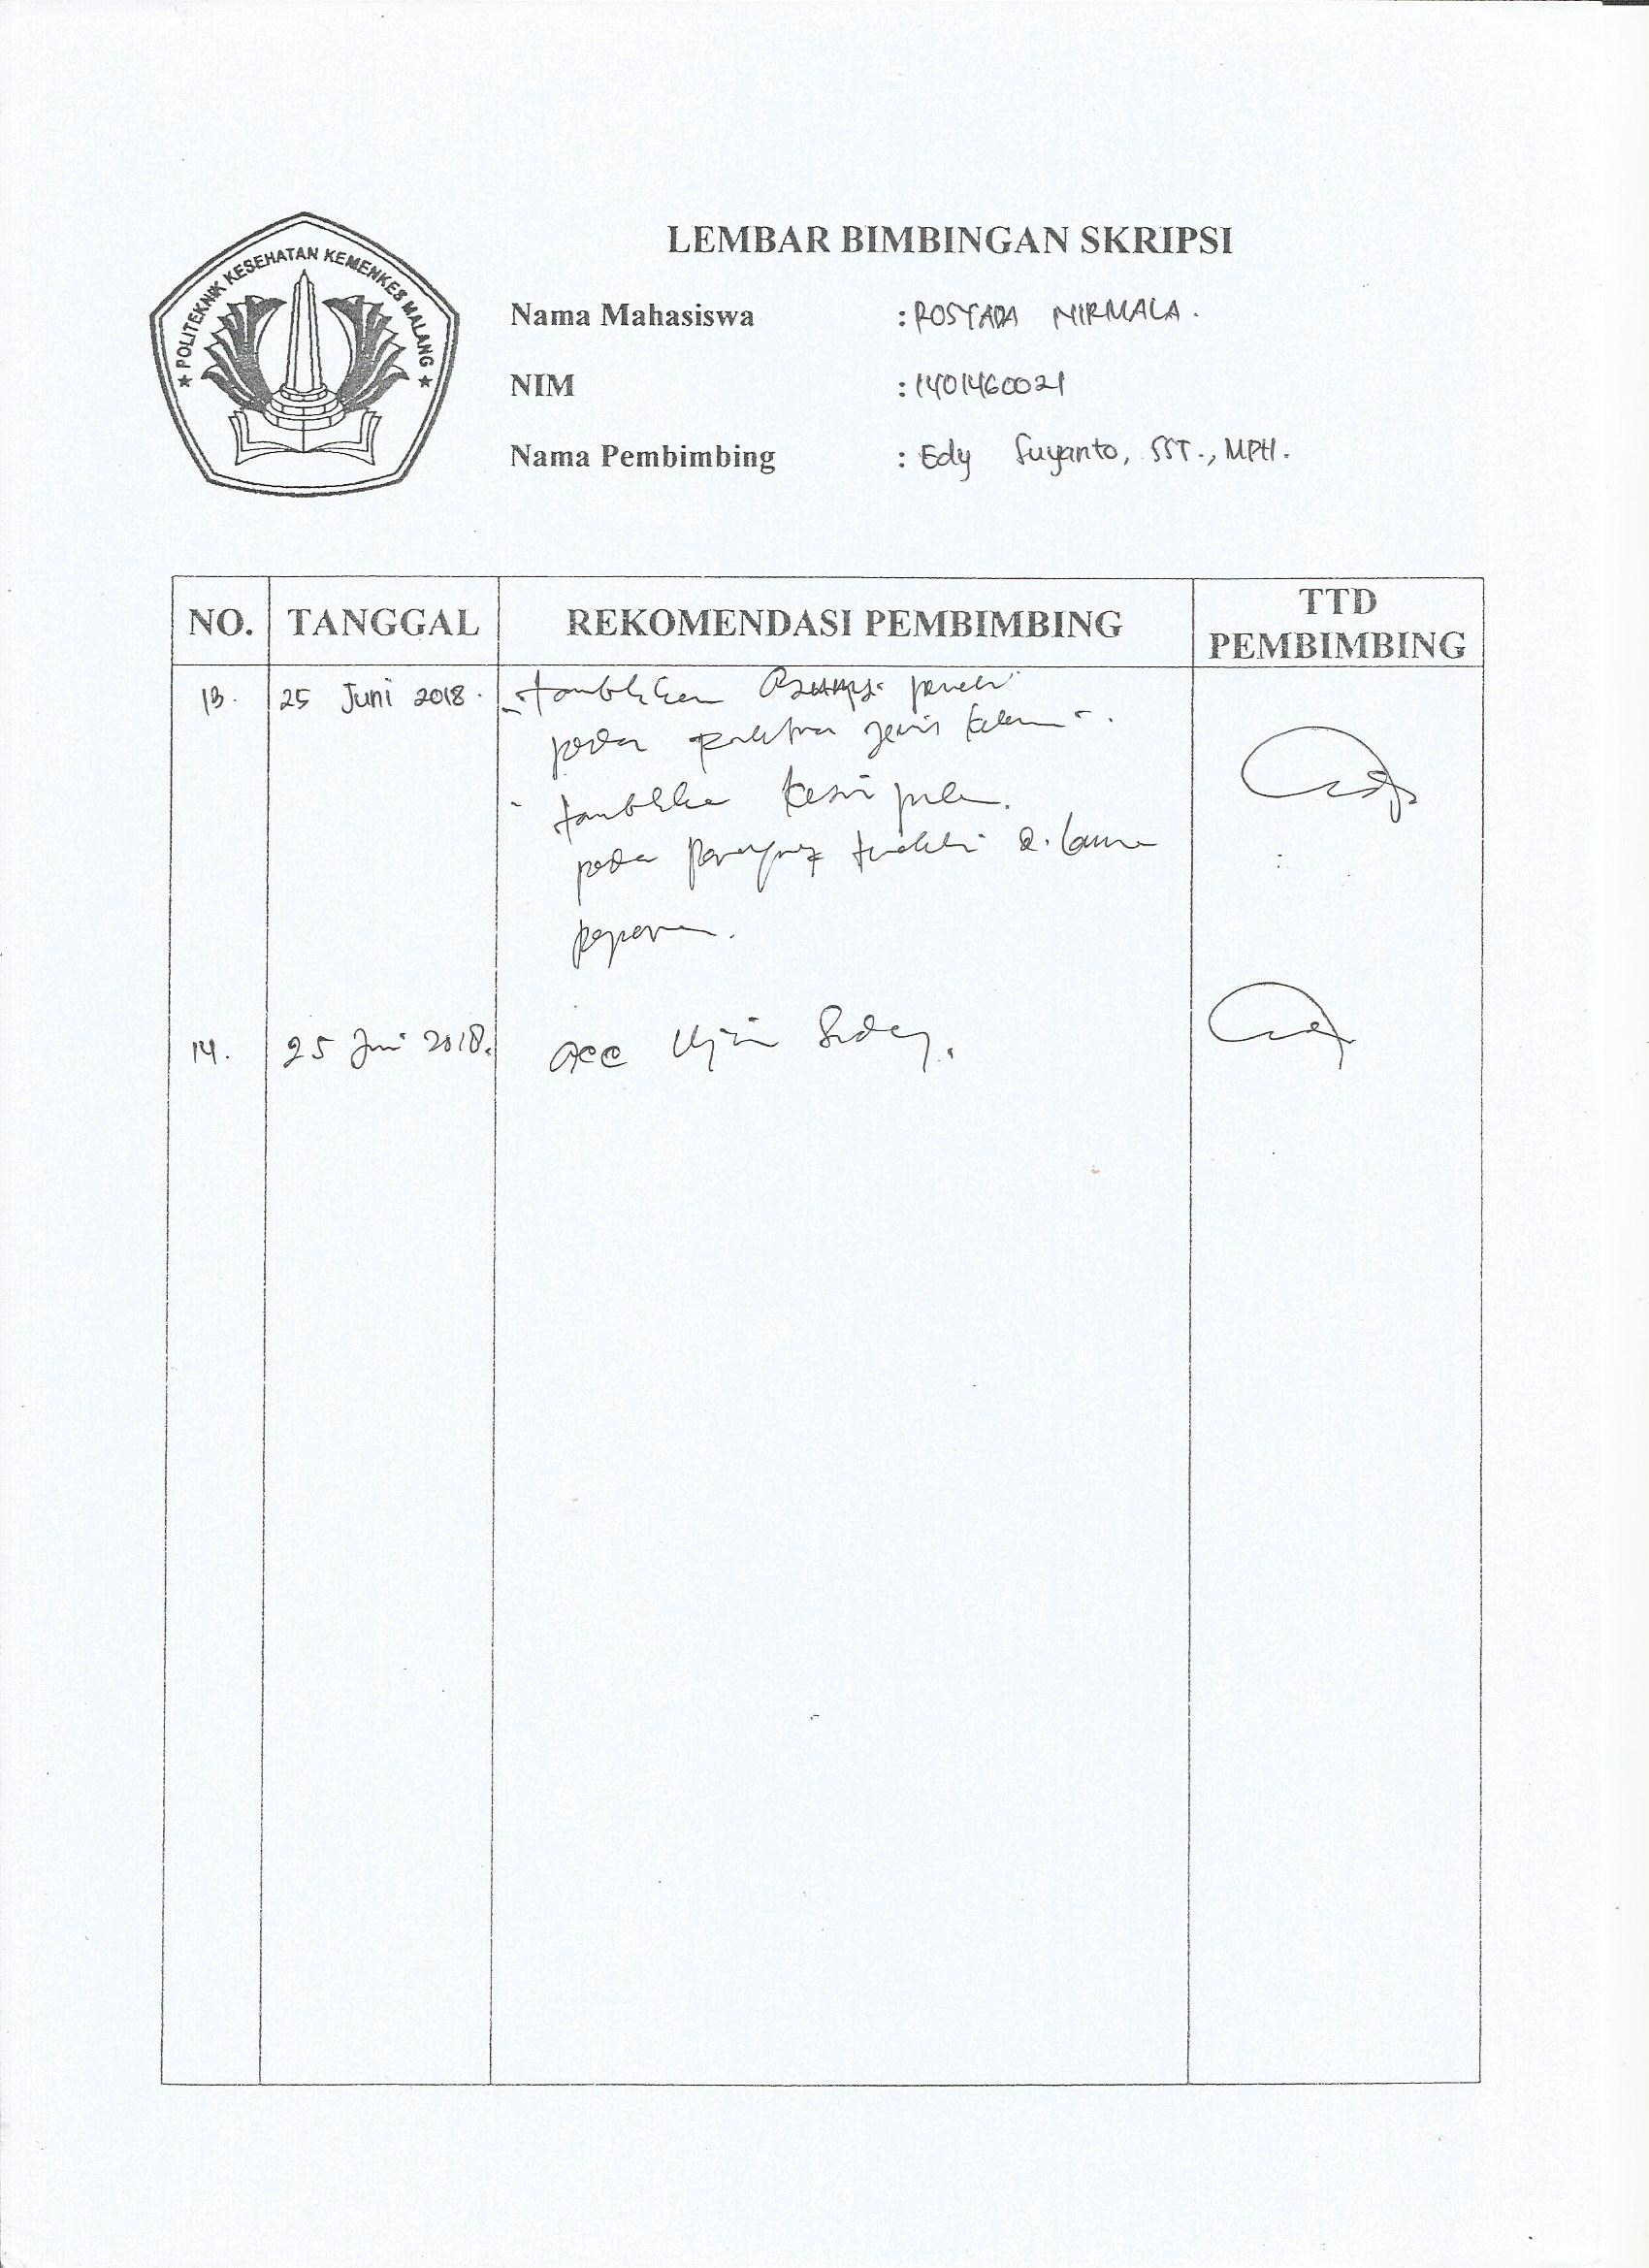 POLITEKNIK KESEHATAN KEMENKES MALANG
LEMBAR BIMBINGAN SKRIPSI
Nama Mahasiswa : ROSYADA NIRMALA.
NIM : 1401460021
Nama Pembimbing : Edy Suyanto, SST., MPH.
NO. TANGGAL REKOMENDASI PEMBIMBING TTD PEMBIMBING
13. 25 Juni 2018. - tambahkan Asumsi peneliti
pada jenis kelamin.
- tambahkan kesimpulan.
pada
paparan.
14. 25 Juni 2018. acc Ujian Sidang.